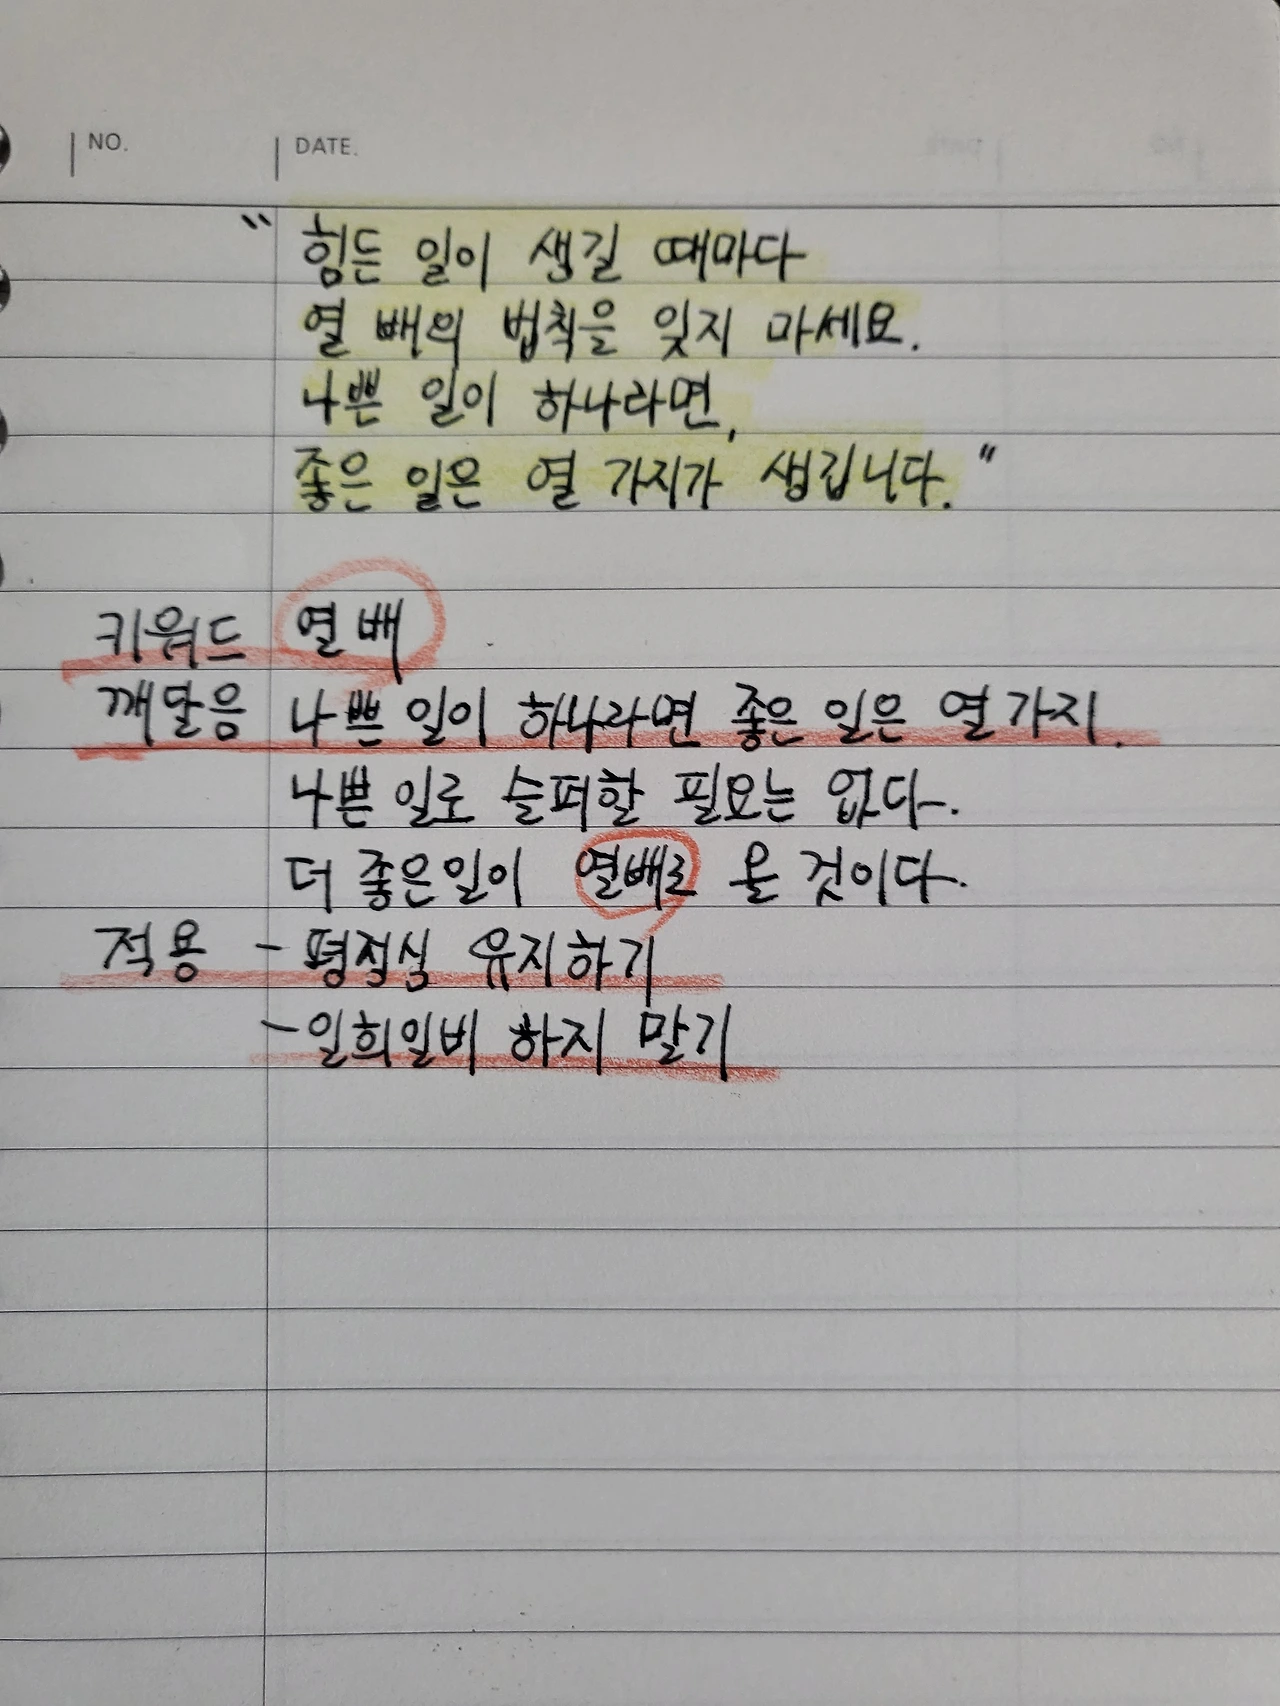 NO. DATE.
“ 힘든 일이 생길 때마다
열 배의 법칙을 잊지 마세요.
나쁜 일이 하나라면,
좋은 일은 열 가지가 생깁니다.”
키워드 열 배
깨달음 나쁜 일이 하나라면 좋은 일은 열 가지.
나쁜 일로 슬퍼할 필요는 없다.
더 좋은일이 열배로 올 것이다.
적용 - 평정심 유지하기
- 일희일비 하지 말기